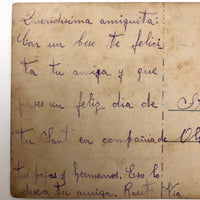 Queridísima amiguita:
Con un beso te felici
ta tu amiga y que
pases un feliz dia de
tu Sant en compañia de
tus papas y hermanos. Eso lo
desea tu amiga. Rosita